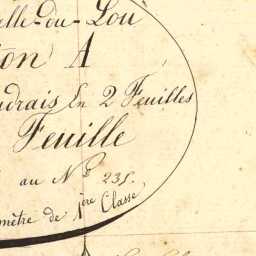 elle-du-Lou
on A
udrais En 2 Feuilles
Feuille
au N° 235.
mètre de 1ère Classe